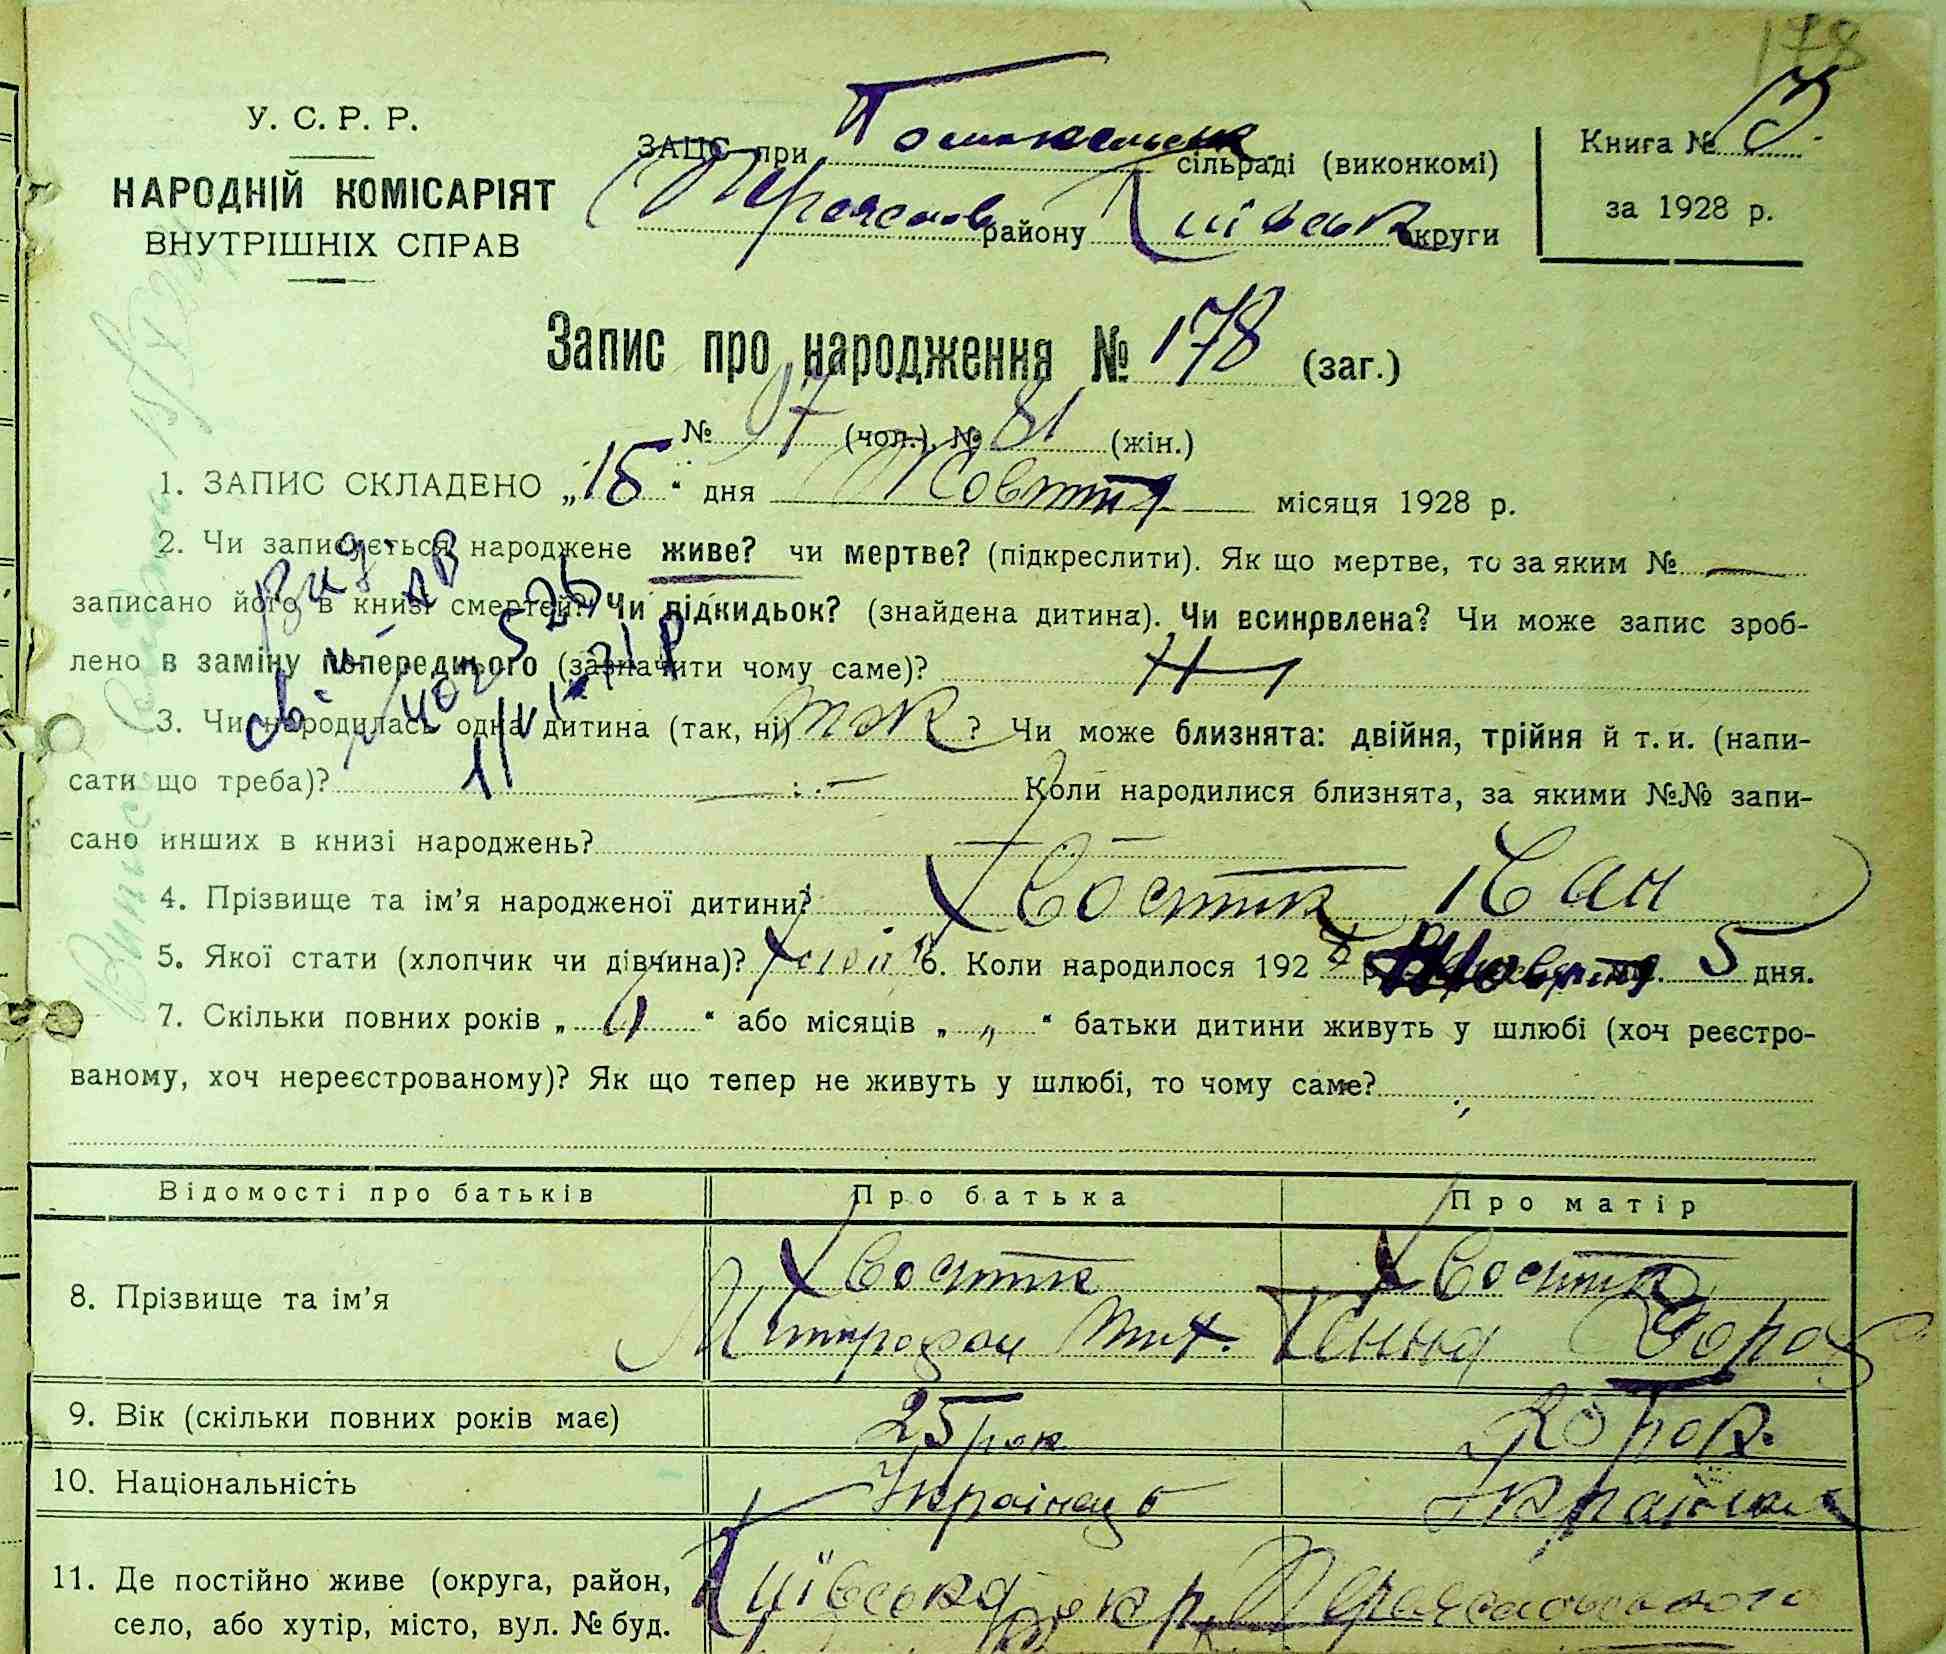 178
У. С. Р. Р.
НАРОДНІЙ КОМІСАРІЯТ
ВНУТРІШНІХ СПРАВ
ЗАЦС при сільраді (виконкомі)
Переяслов району Київськ округи
Книга №
за 1928 р.
Запис про народження № 178 (заг.)
№ 97 (чол.) № 81 (жін.)
1. ЗАПИС СКЛАДЕНО „15“ дня Жовтня місяця 1928 р.
2. Чи записується народжене живе? чи мертве? (підкреслити). Як що мертве, то за яким № —
записано його в книзі смертей? Чи підкидьок? (знайдена дитина). Чи всиновлена? Чи може запис зроб-
лено в заміну попереднього (зазначити чому саме)?
3. Чи народилась одна дитина (так, ні) так ? Чи може близнята: двійня, трійня й т. и. (напи-
сати що треба)? Коли народилися близнята, за якими №№ запи-
сано инших в книзі народжень?
4. Прізвище та ім’я народженої дитини? Хвостик Іван
5. Якої стати (хлопчик чи дівчина)? 6. Коли народилося 1928 р. Жовтня м. 5 дня.
7. Скільки повних років „ “ або місяців „ „ “ батьки дитини живуть у шлюбі (хоч реєстро-
ваному, хоч нереєстрованому)? Як що тепер не живуть у шлюбі, то чому саме?
Відомості про батьків Про батька Про матір
8. Прізвище та ім’я Хвостик Хвостик
Митрофан Тих. Ганна
9. Вік (скільки повних років має) 25 рок 20 рок.
10. Національність Українець Українка
11. Де постійно живе (округа, район, Київська окр. Переяславського
село, або хутір, місто, вул. № буд.